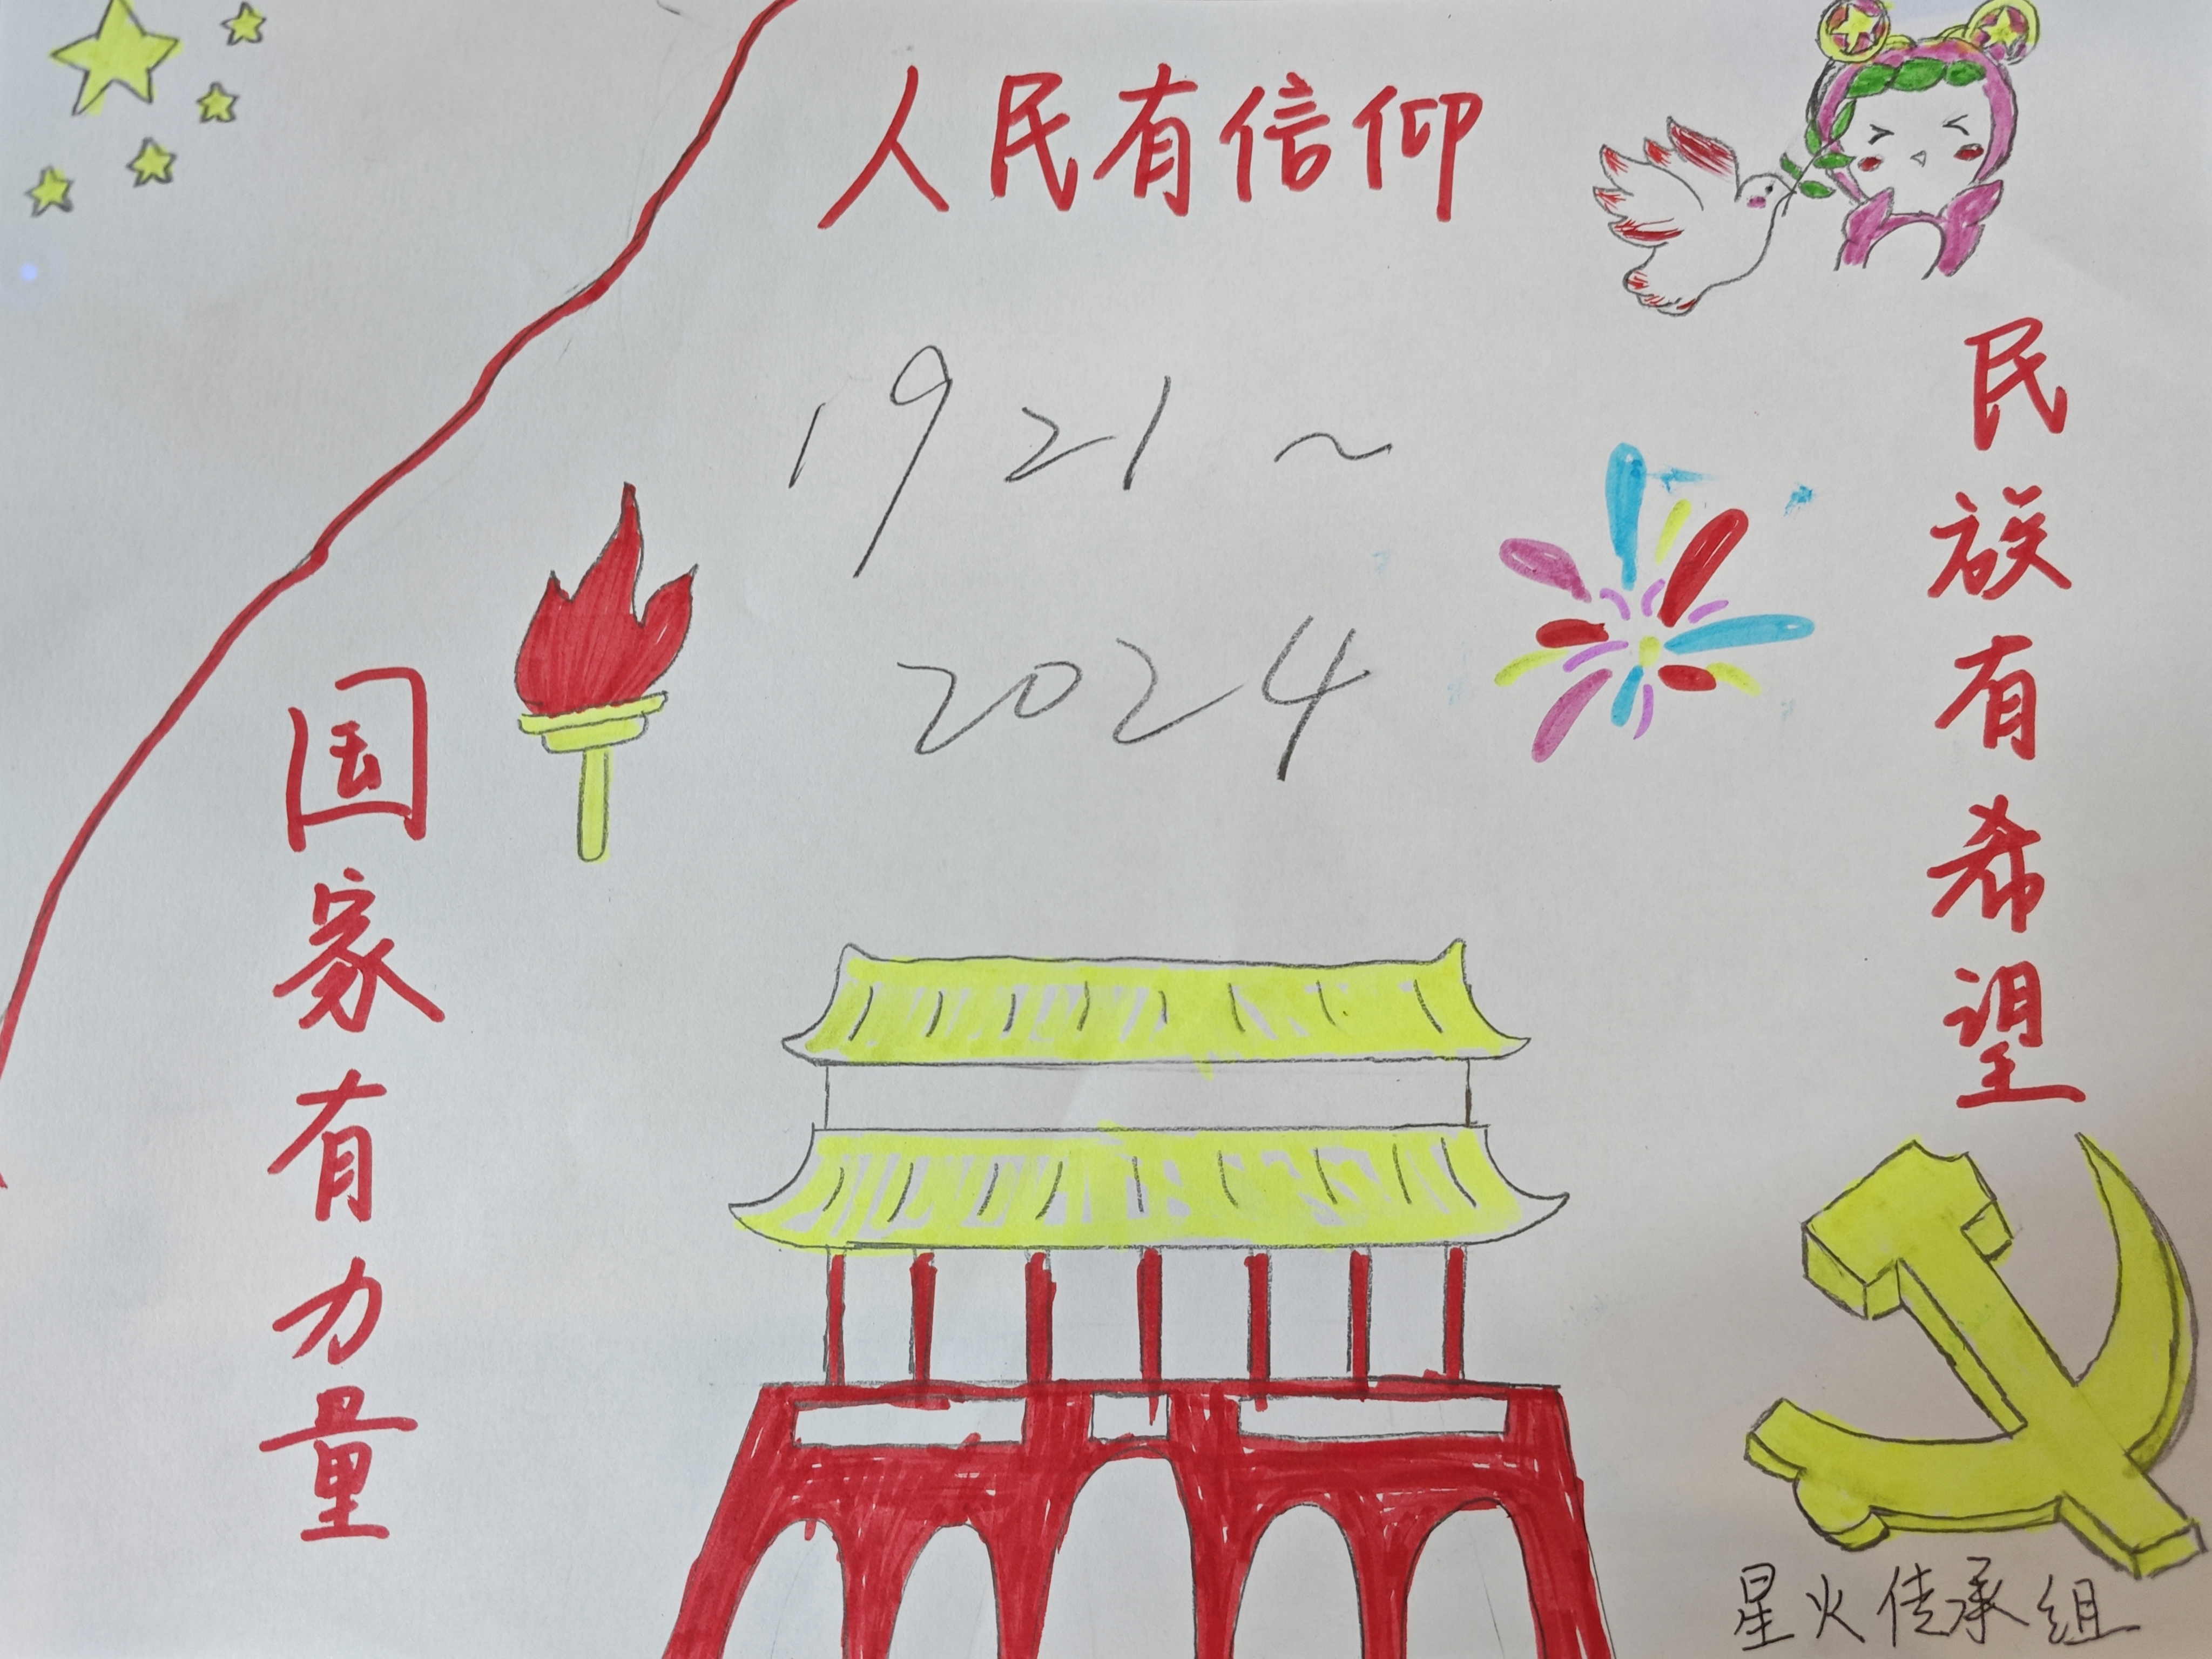 人民有信仰
1921~
2024
民族有希望
国家有力量
星火传承组